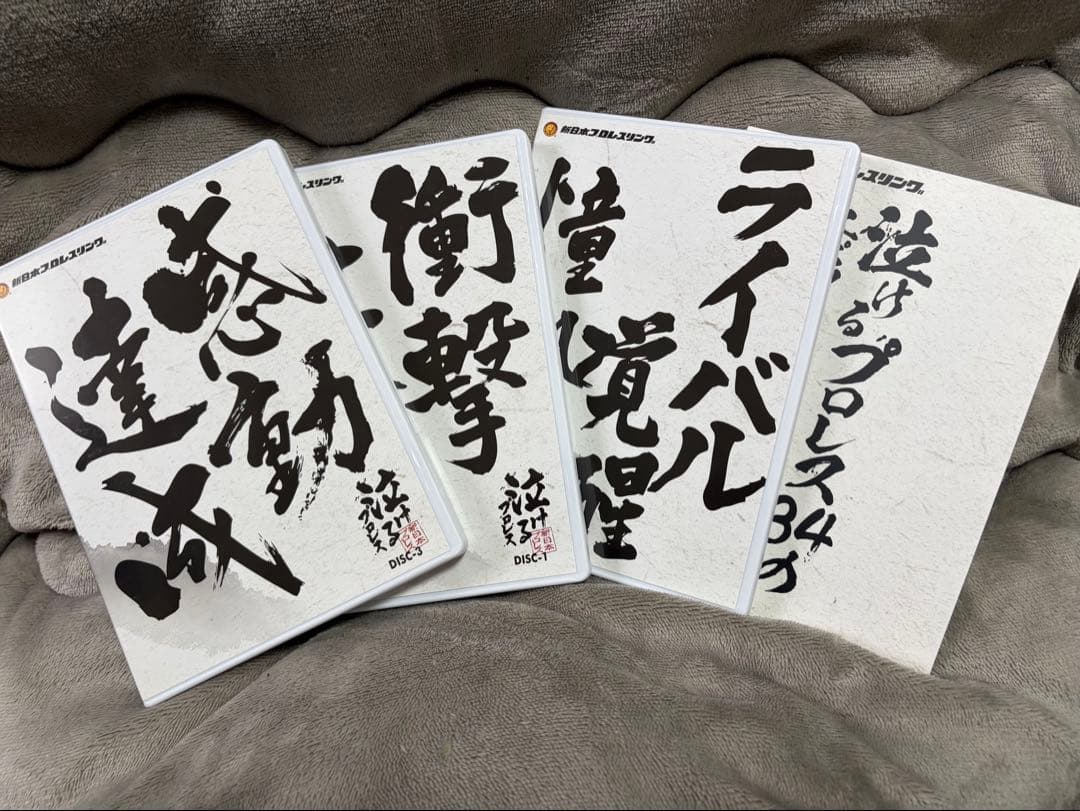 新日本プロレスリング
感動
達成
泣ける
プロレス
新日本
プロレス
DISC-3
スリング
衝撃
泣ける
プロレス
新日本
プロレス
DISC-1
新日本プロレスリング
ライバル
覚醒
憧
レスリング
泣ける
プロレス
34の